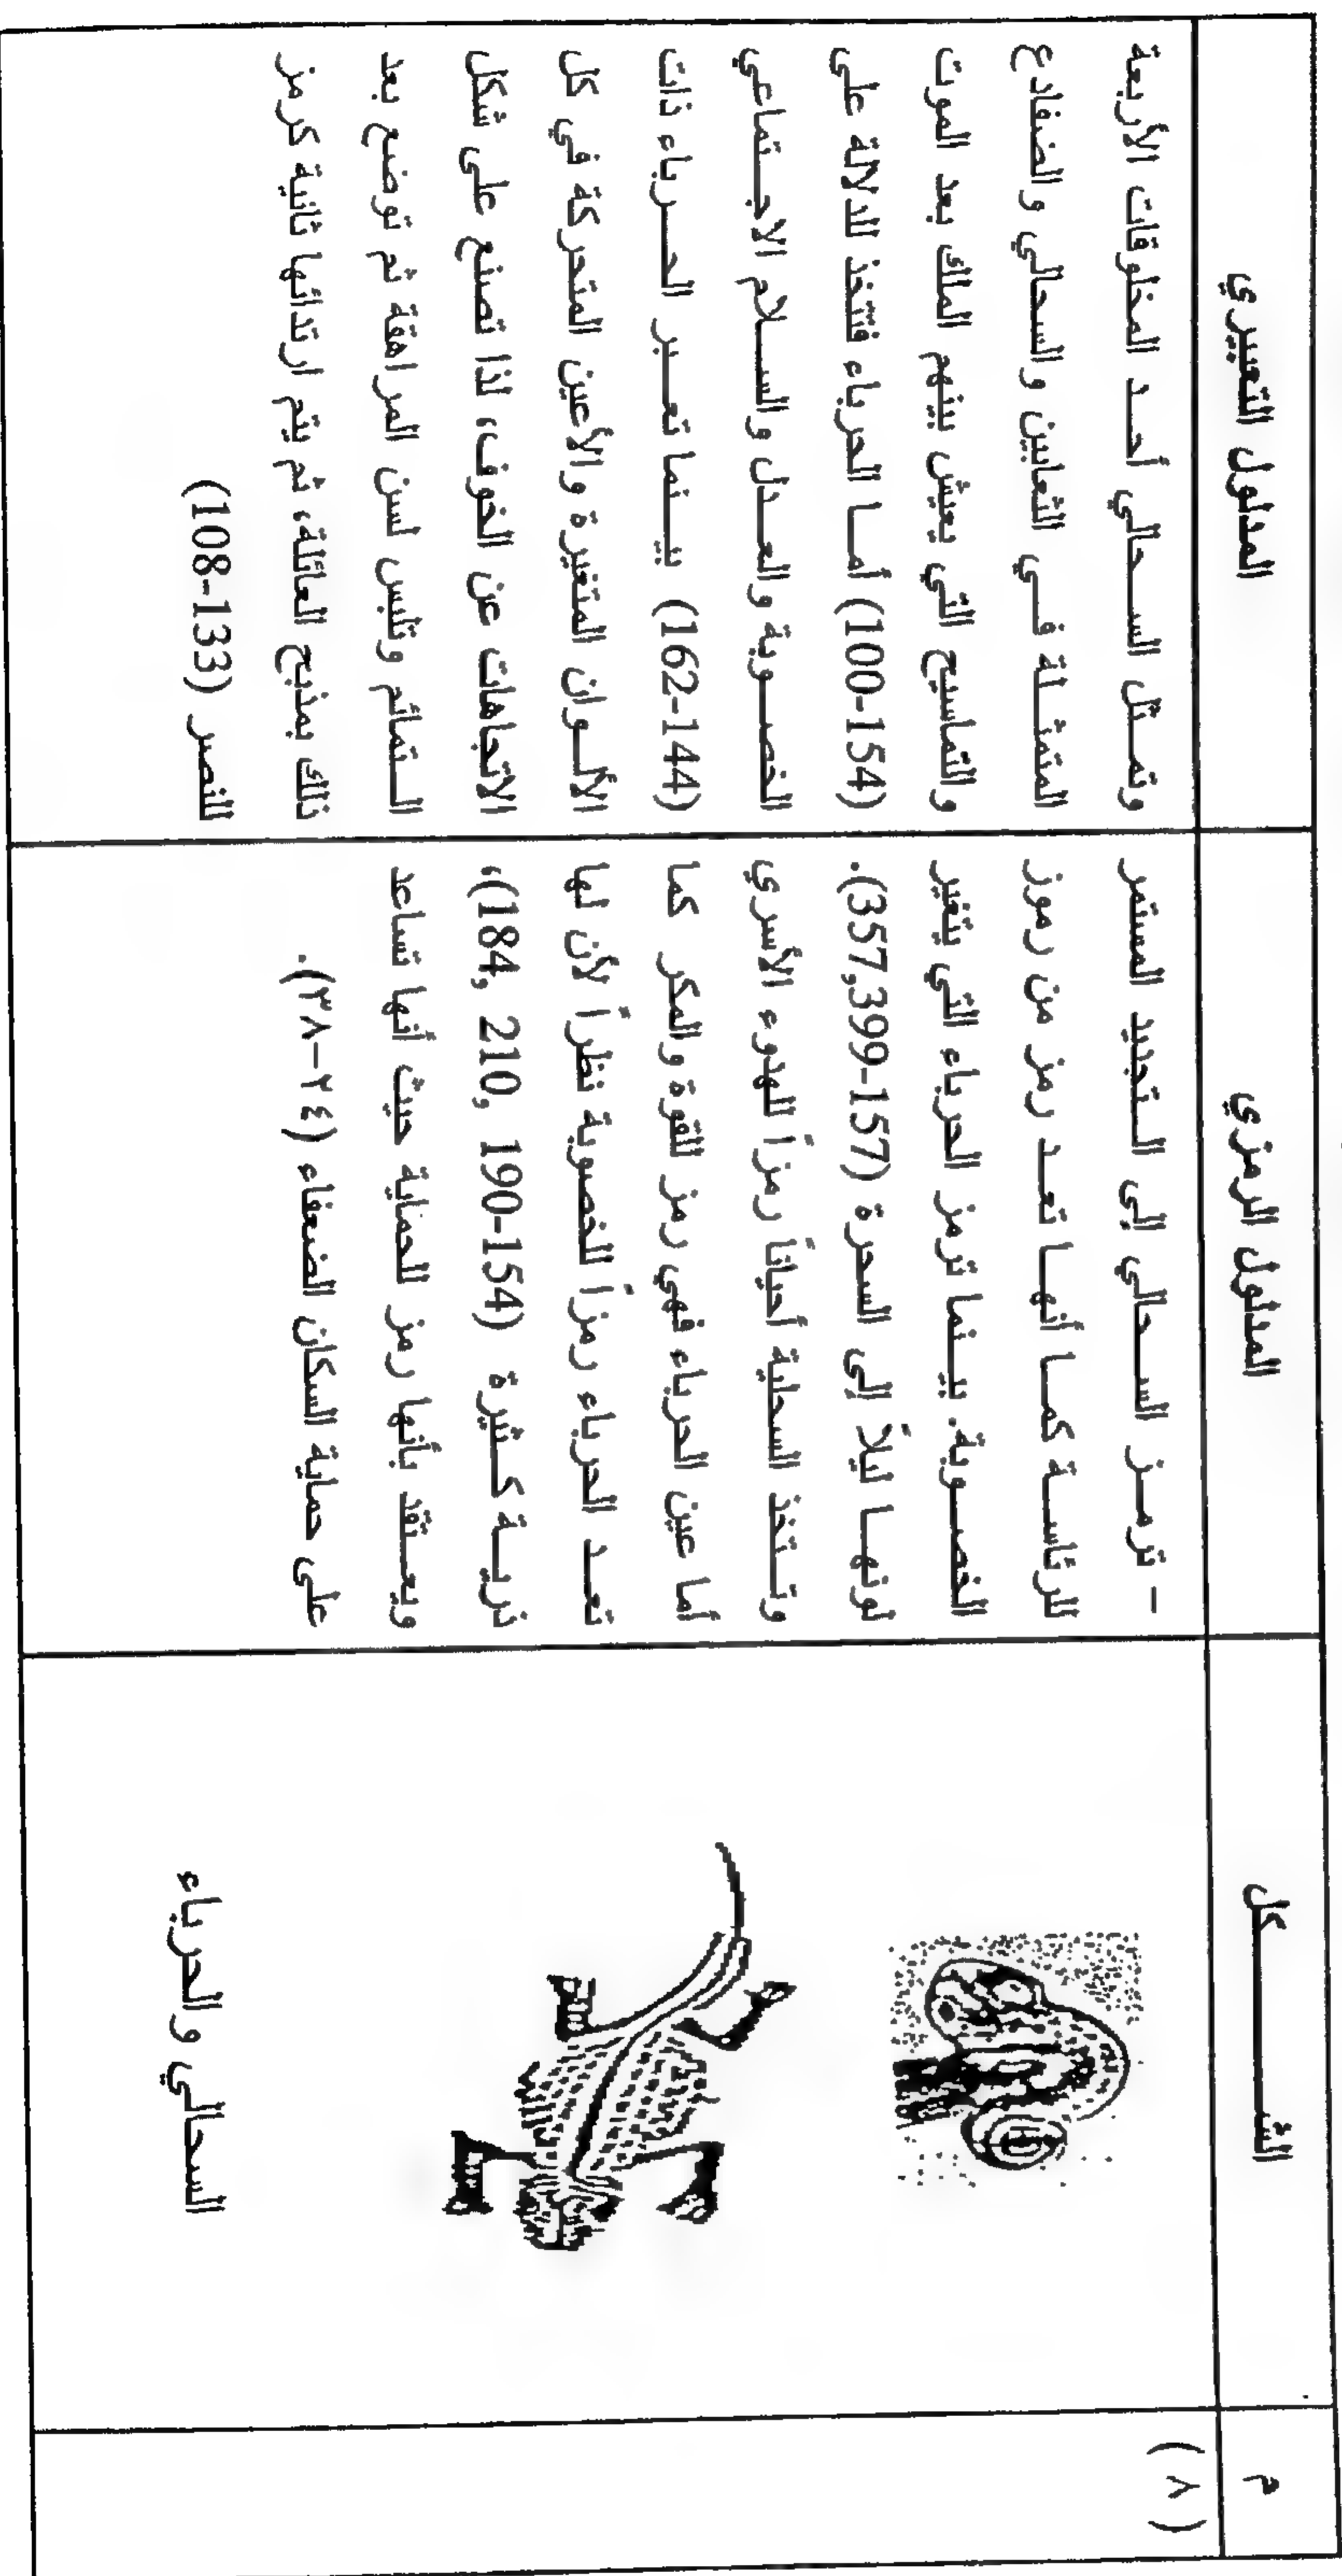 م
الشكل
المدلول الرمزي
المدلول التعبيري
(٨)
السحالي والحرباء
- ترمز السحالي إلى التجديد المستمر
للرئاسة كما أنها تعد رمز من رموز
الخصوبة. بينما ترمز الحرباء التي يتغير
لونها ليلاً إلى السحرة (157-357,399).
وتتخذ السحلية أحياناً رمزاً للهدوء الأسري
أما عين الحرباء فهي رمز للقوة والمكر كما
تعد الحرباء رمزاً للخصوبة نظراً لأن لها
ذرية كثيرة (154-190 ,210 ,184)،
ويعتقد بأنها رمز للحماية حيث أنها تساعد
على حماية السكان الضعفاء (٢٤-٣٨).
وتمثل السحالي أحد المخلوقات الأربعة
المتمثلة في الثعابين والسحالي والضفادع
والتماسيح التي يعيش بينهم الملك بعد الموت
(100-154) أما الحرباء فتتخذ للدلالة على
الخصوبة والعدل والسلام الاجتماعي
(162-144) بينما تعبر الحرباء ذات
الألوان المتغيرة والأعين المتحركة في كل
الاتجاهات عن الخوف، لذا تصنع على شكل
التمائم وتلبس لسن المراهقة ثم توضع بعد
ذلك بمذبح العائلة، ثم يتم ارتدائها ثانية كرمز
للنصر (133-108)